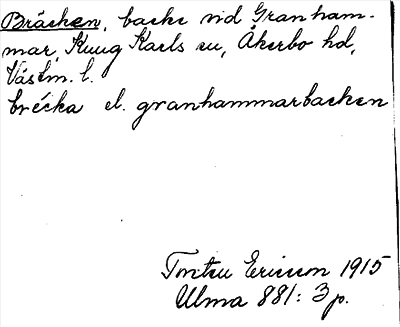 Bräcken, backe vid Granham-
mar, Kung Karls sn, Åkerbo hd,
Västm. l.
brécka el. granhammarbacken
Torsten Ericson 1915
Ulma 881: 3 p.